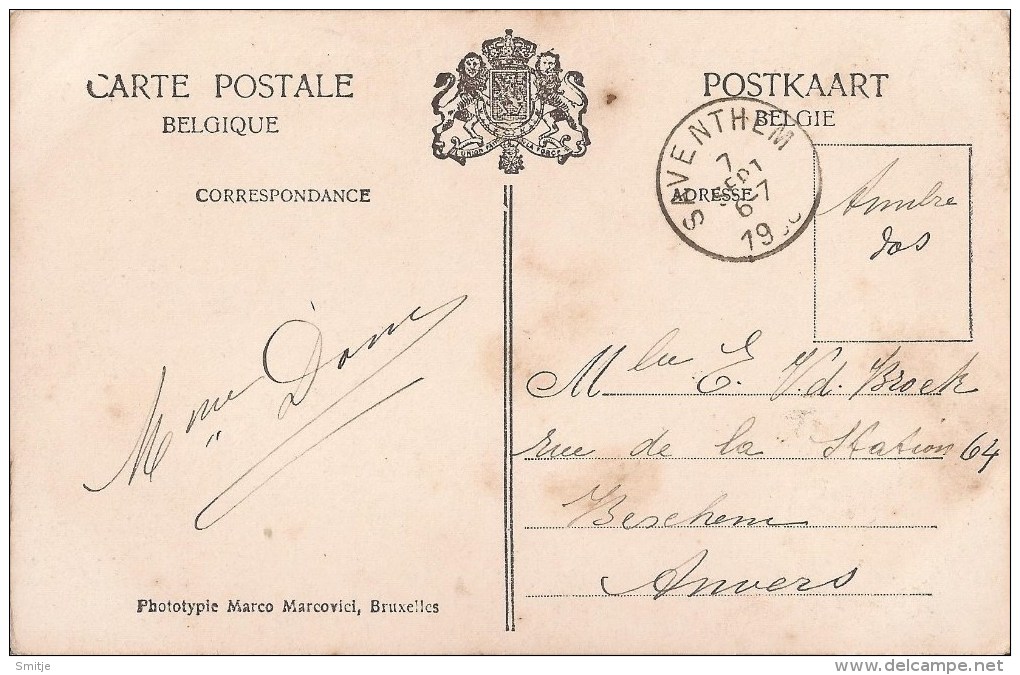 CARTE POSTALE
BELGIQUE
POSTKAART
BELGIE
L'UNION FAIT LA FORCE
CORRESPONDANCE
ADRESSE
SAVENTHEM
7
SEPT
6-7
19
dos
Mme
Mlle E. V.d. Broek
rue de la Station 64
Berchem
Anvers
Phototypie Marco Marcovici, Bruxelles
Smitje
www.delcampe.net